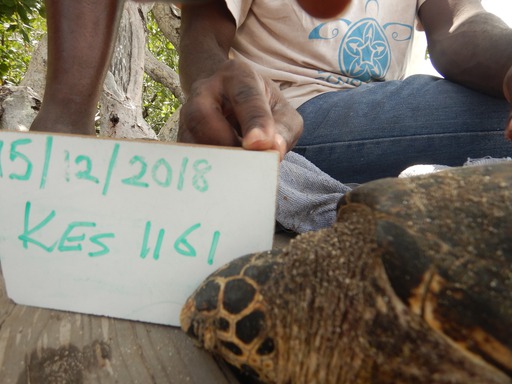 15/12/2018
KES 1161